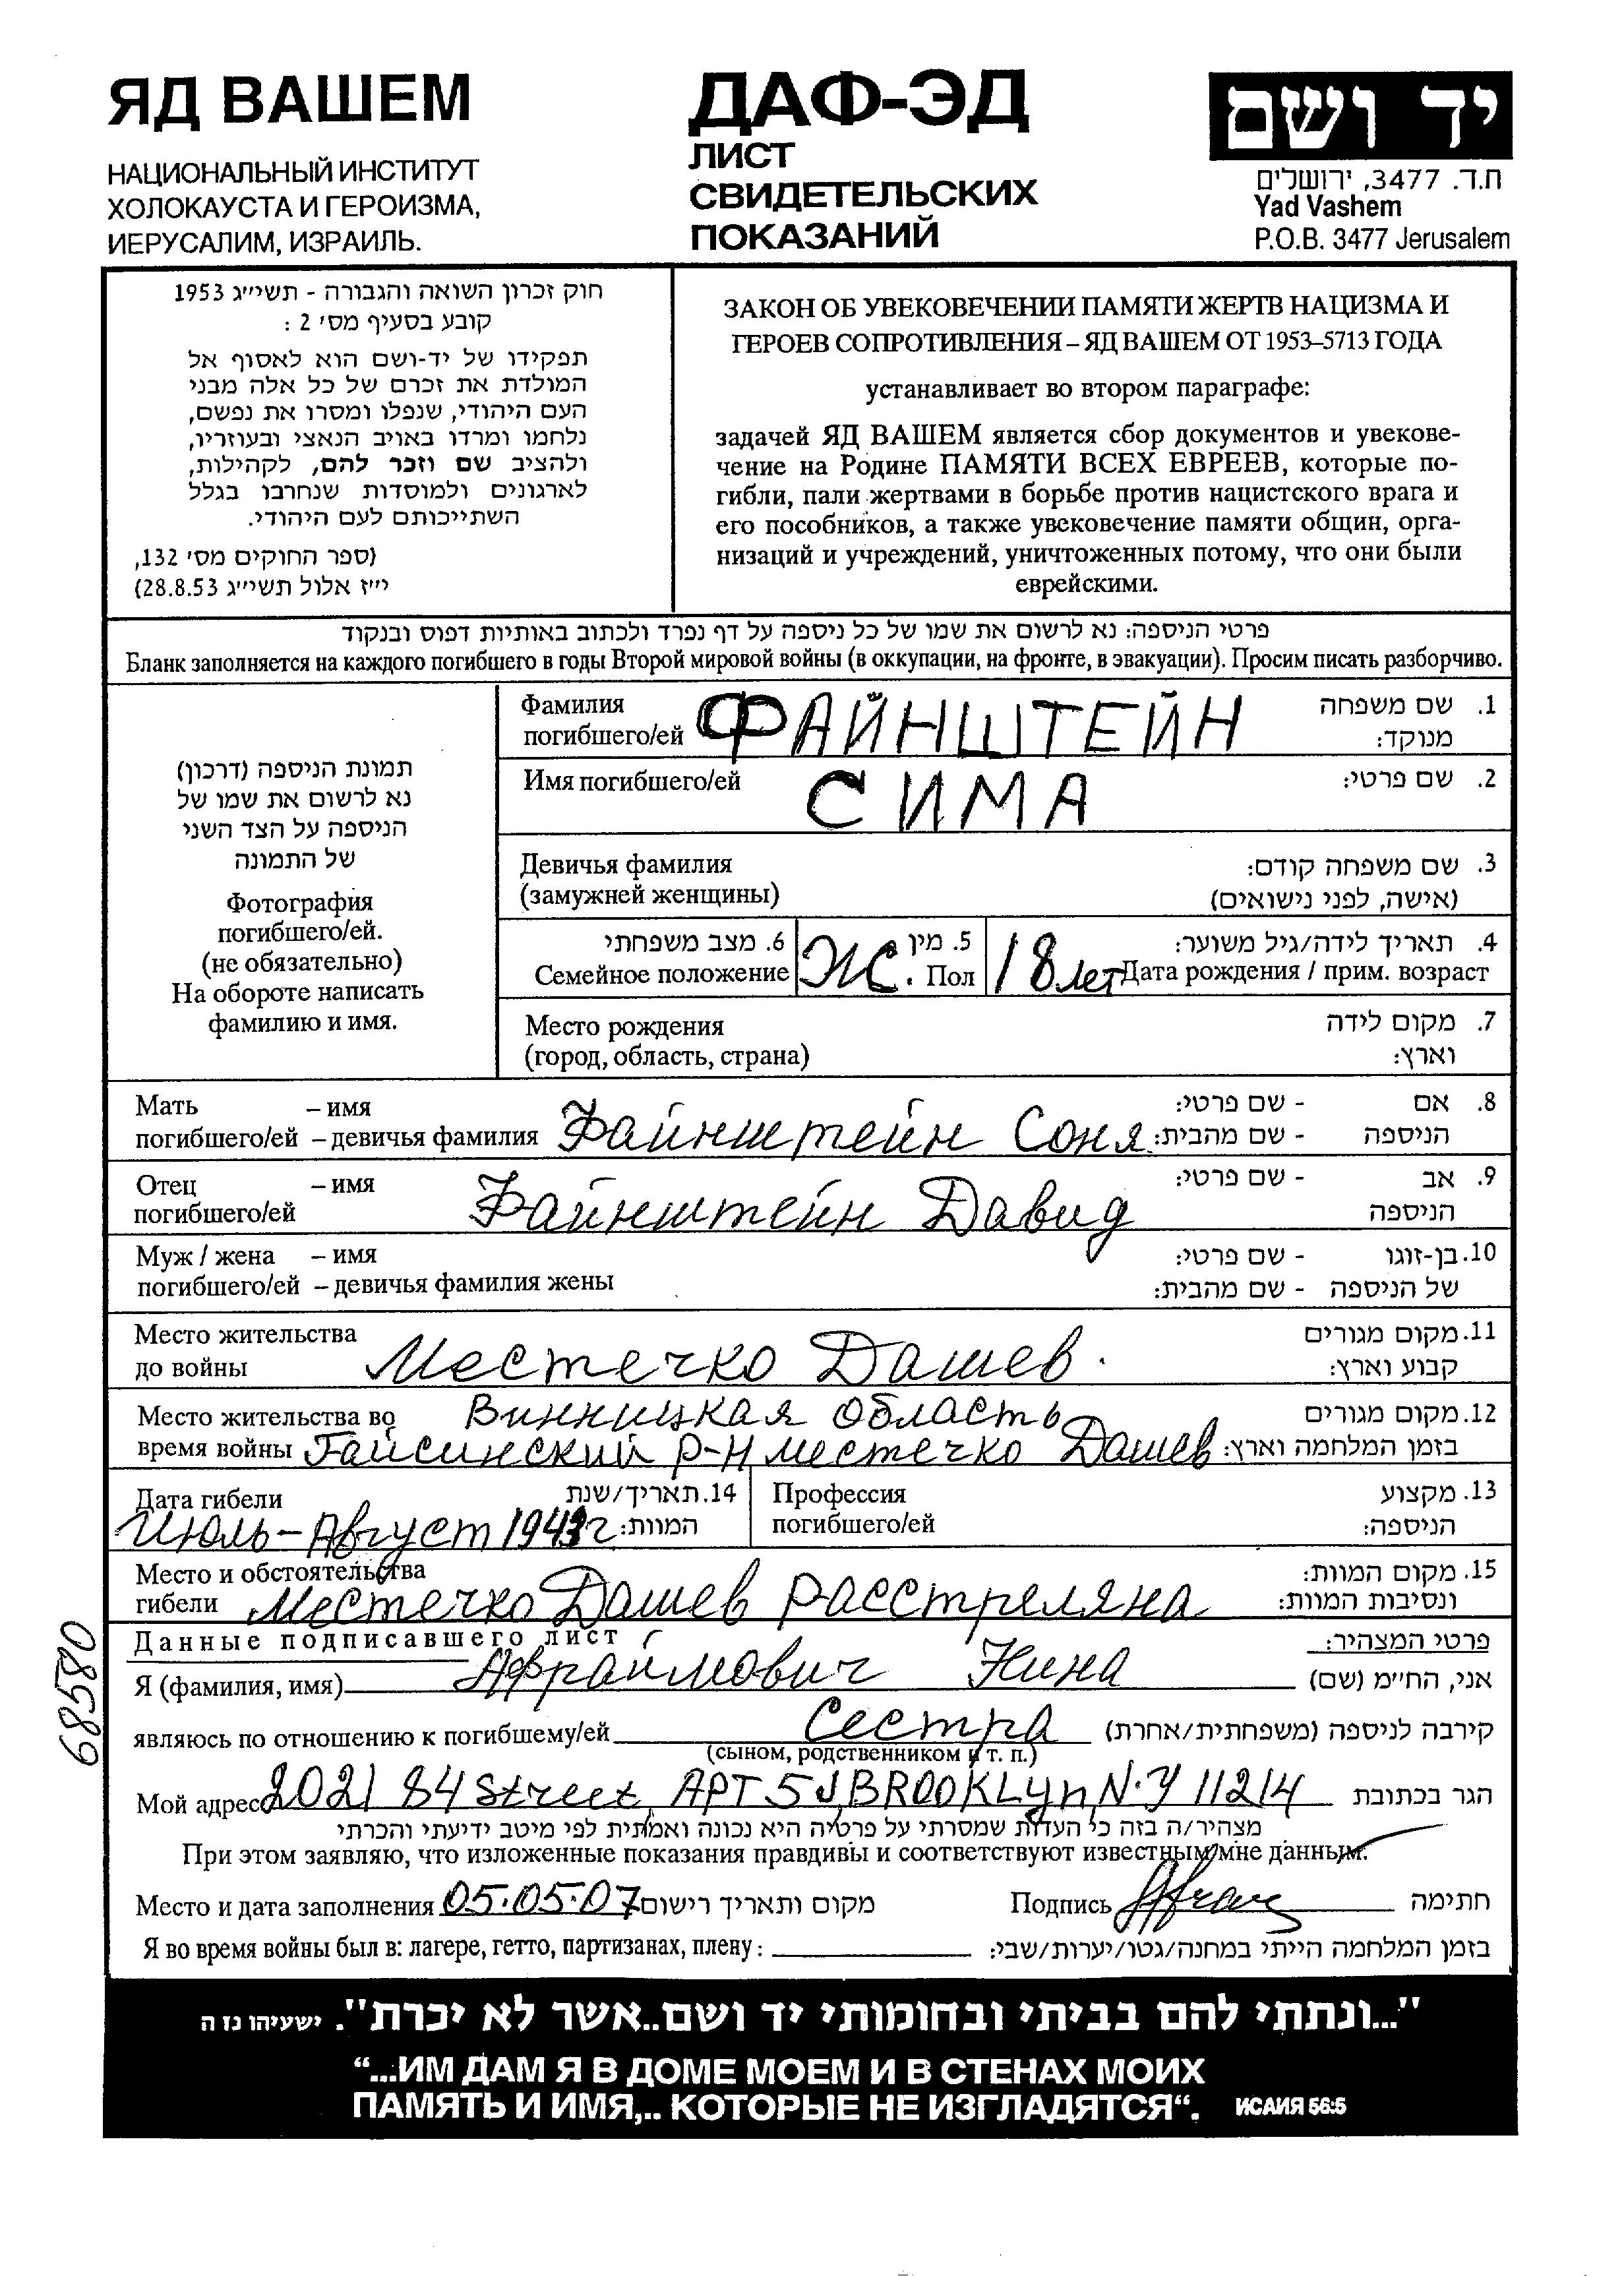 ЯД ВАШЕМ
НАЦИОНАЛЬНЫЙ ИНСТИТУТ
ХОЛОКАУСТА И ГЕРОИЗМА,
ИЕРУСАЛИМ, ИЗРАИЛЬ.
ДАФ-ЭД
ЛИСТ
СВИДЕТЕЛЬСКИХ
ПОКАЗАНИЙ
יד ושם
ת.ד. 3477, ירושלים
Yad Vashem
P.O.B. 3477 Jerusalem
חוק זכרון השואה והגבורה - תשי״ג 1953
קובע בסעיף מס׳ 2 :
תפקידו של יד-ושם הוא לאסוף אל
המולדת את זכרם של כל אלה מבני
העם היהודי, שנפלו ומסרו את נפשם,
נלחמו ומרדו באויב הנאצי ובעוזריו,
ולהציב שם וזכר להם, לקהילות,
לארגונים ולמוסדות שנחרבו בגלל
השתייכותם לעם היהודי.
(ספר החוקים מס׳ 132,
י״ז אלול תשי״ג 28.8.53)
ЗАКОН ОБ УВЕКОВЕЧЕНИИ ПАМЯТИ ЖЕРТВ НАЦИЗМА И
ГЕРОЕВ СОПРОТИВЛЕНИЯ – ЯД ВАШЕМ ОТ 1953–5713 ГОДА
устанавливает во втором параграфе:
задачей ЯД ВАШЕМ является сбор документов и увекове-
чение на Родине ПАМЯТИ ВСЕХ ЕВРЕЕВ, которые по-
гибли, пали жертвами в борьбе против нацистского врага и
его пособников, а также увековечение памяти общин, орга-
низаций и учреждений, уничтоженных потому, что они были
еврейскими.
פרטי הניספה: נא לרשום את שמו של כל ניספה על דף נפרד ולכתוב באותיות דפוס ובנקוד
Бланк заполняется на каждого погибшего в годы Второй мировой войны (в оккупации, на фронте, в эвакуации). Просим писать разборчиво.
תמונת הניספה (דרכון)
נא לרשום את שמו של
הניספה על הצד השני
של התמונה
Фотография
погибшего/ей.
(не обязательно)
На обороте написать
фамилию и имя.
Фамилия ФАЙНШТЕЙН 1. שם משפחה
погибшего/ей מנוקד:
Имя погибшего/ей СИМА 2. שם פרטי:
Девичья фамилия 3. שם משפחה קודם:
(замужней женщины) (אישה, לפני נישואים)
6. מצב משפחתי 5. מין 4. תאריך לידה/גיל משוער:
Семейное положение Ж. Пол 18 лет Дата рождения / прим. возраст
Место рождения 7. מקום לידה
(город, область, страна) וארץ:
Мать – имя 8. אם - שם פרטי:
погибшего/ей – девичья фамилия Файнштейн Соня הניספה - שם מהבית:
Отец – имя 9. אב - שם פרטי:
погибшего/ей Файнштейн Давид הניספה
Муж / жена – имя 10. בן-זוגו - שם פרטי:
погибшего/ей – девичья фамилия жены של הניספה - שם מהבית:
Место жительства 11. מקום מגורים
до войны Местечко Дашев. קבוע וארץ:
Место жительства во Винницкая область 12. מקום מגורים
время войны Гайсинский р-н местечко Дашев בזמן המלחמה וארץ:
Дата гибели 14. תאריך/שנת Профессия 13. מקצוע
Июль-Август 1943 г המוות: погибшего/ей הניספה:
Место и обстоятельства 15. מקום המוות:
гибели Местечко Дашев расстреляна ונסיבות המוות:
68580
Данные подписавшего лист פרטי המצהיר:
Я (фамилия, имя) Афраймович Нина אני, החי״מ (שם)
являюсь по отношению к погибшему/ей Сестра קירבה לניספה (משפחתית/אחרת)
(сыном, родственником и т. п.)
Мой адрес 2021 84 Street, APT 5J, BROOKLyn, N.Y 11214 הגר בכתובת
מצהיר/ה בזה כי העדות שמסרתי על פרטיה היא נכונה ואמתית לפי מיטב ידיעתי והכרתי
При этом заявляю, что изложенные показания правдивы и соответствуют известным мне данным.
Место и дата заполнения 05.05.07 מקום ותאריך רישום Подпись חתימה
Я во время войны был в: лагере, гетто, партизанах, плену : בזמן המלחמה הייתי במחנה/גטו/יערות/שבי:
"...ונתתי להם בביתי ובחומותי יד ושם..אשר לא יכרת". ישעיהו נז ה
“...ИМ ДАМ Я В ДОМЕ МОЕМ И В СТЕНАХ МОИХ
ПАМЯТЬ И ИМЯ,.. КОТОРЫЕ НЕ ИЗГЛАДЯТСЯ“. ИСАИЯ 56:5